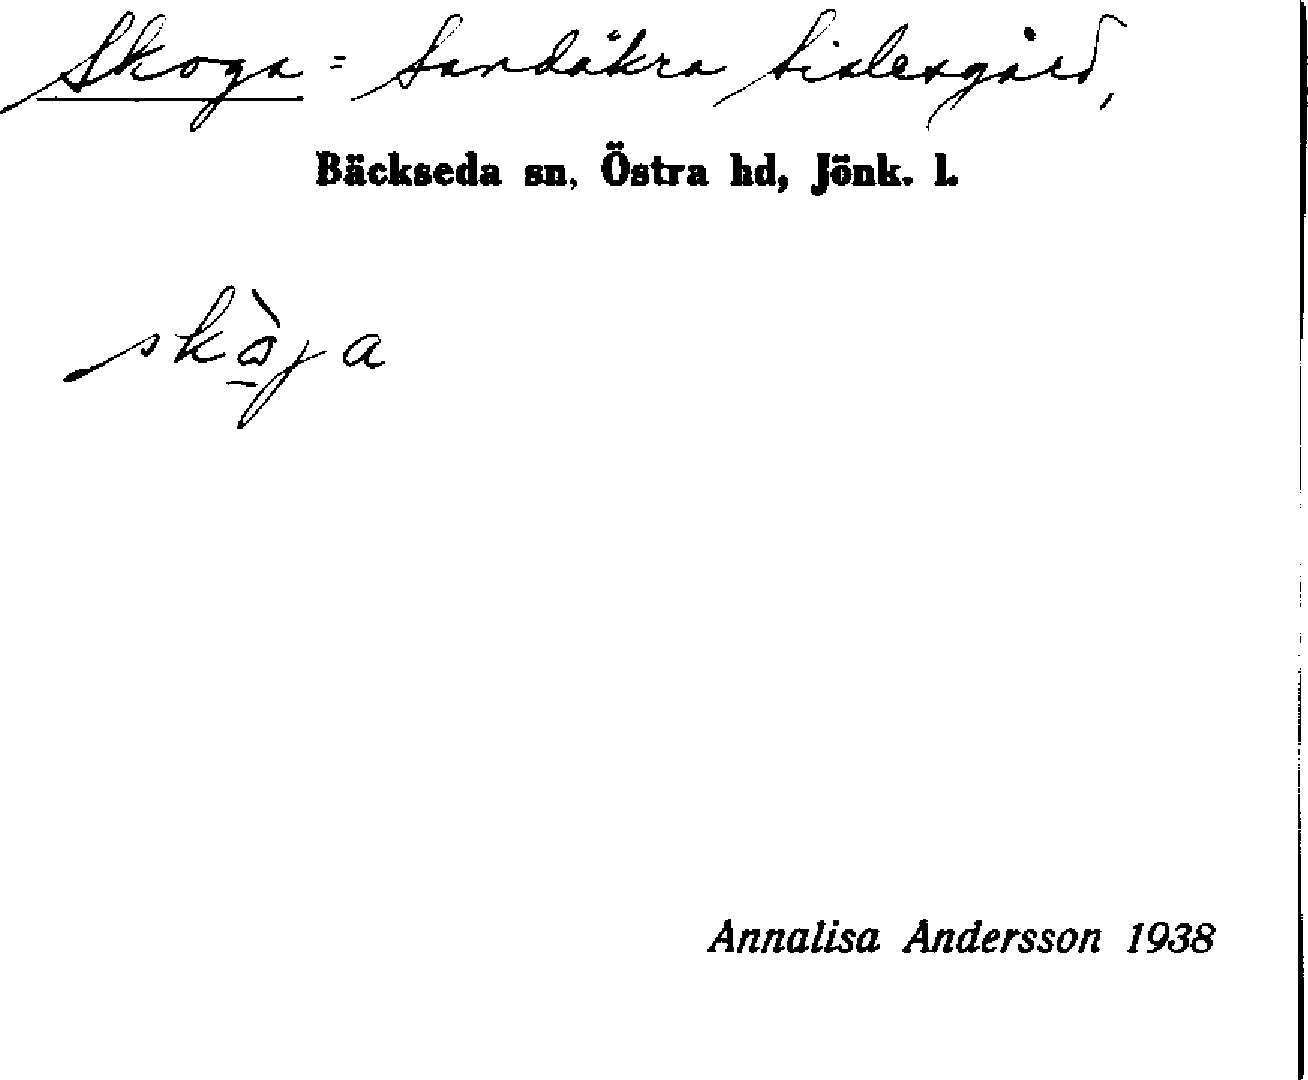 Skoga = Sandåkra Sislesgård,
Bäckseda sn, Östra hd, Jönk. l.
skò̱ga
Annalisa Andersson 1938